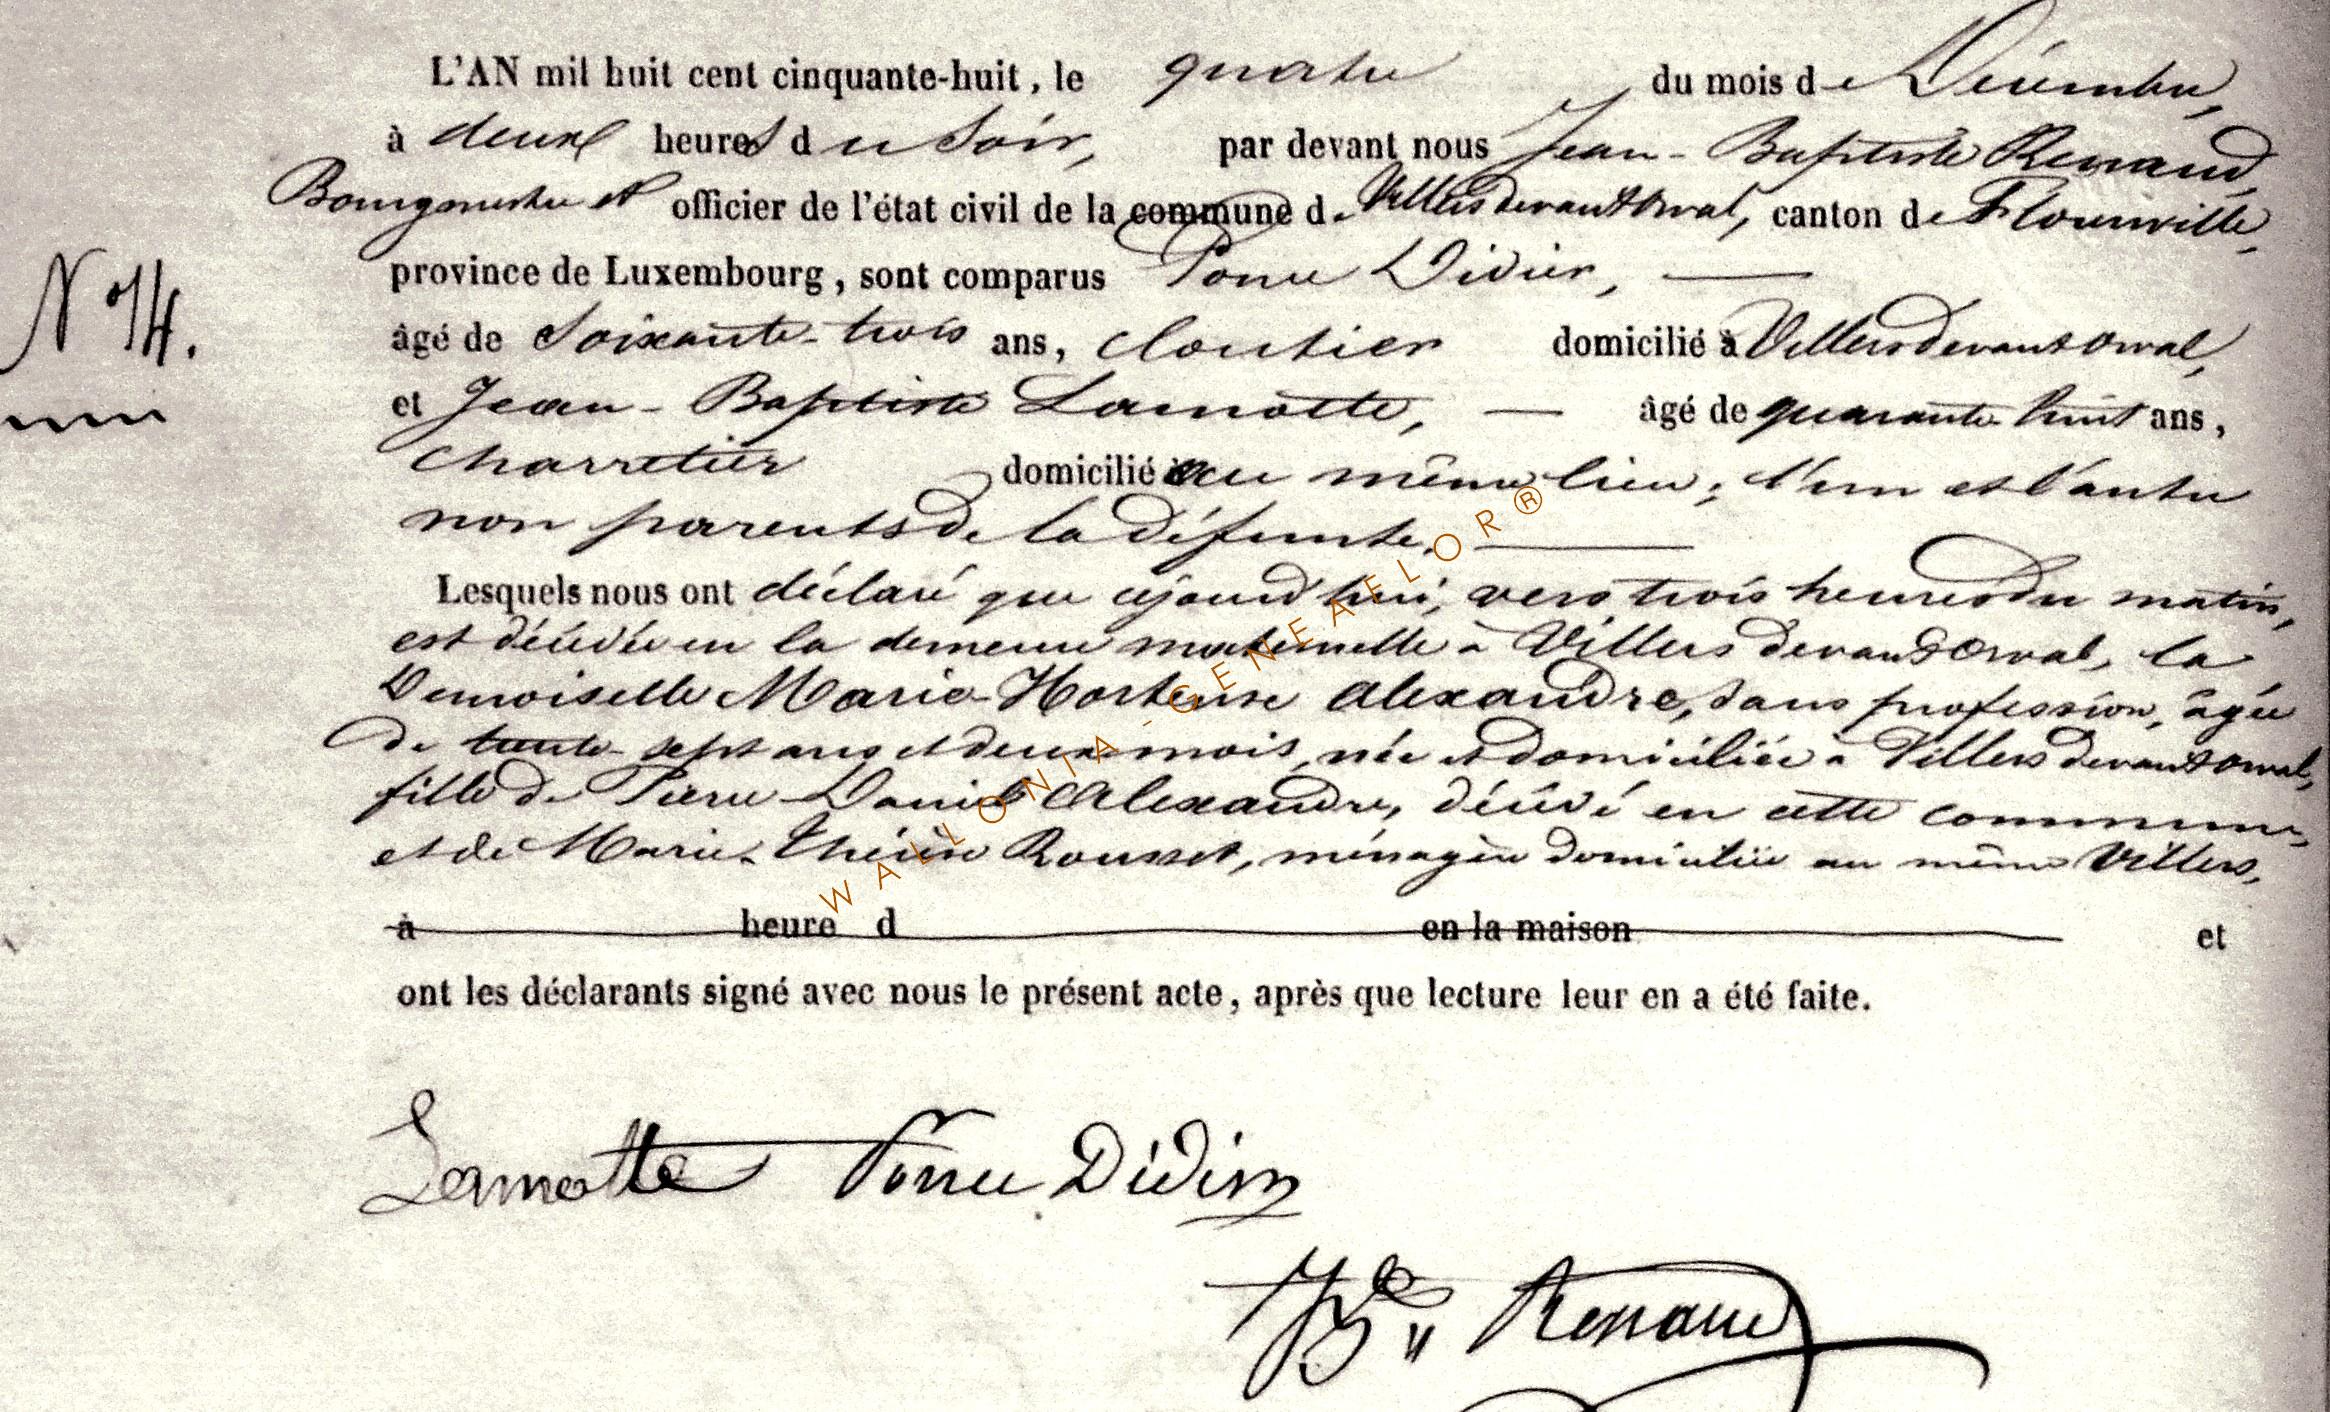 L'AN mil huit cent cinquante-huit, le quatre du mois de Décembre,
à deux heures du Soir, par devant nous Jean-Baptiste Renaud,
Bourgmestre et officier de l'état civil de la commune de Villers devant Orval, canton de Florenville,
province de Luxembourg, sont comparus Didier, —
N° 14.
âgé de Soixante-trois ans, cloutier domicilié à Villers devant Orval,
et Jean-Baptiste Lamotte, — âgé de quarante-huit ans,
charretier domicilié au même lieu; l'un et l'autre
non parents de la défunte. —
Lesquels nous ont déclaré que cejourd'hui, vers trois heures du matin,
est décédée en la demeure maternelle à Villers devant Orval, la
Demoiselle Marie-Hortense Alexandre, sans profession, âgée
de trente-sept ans et deux mois, née et domiciliée à Villers devant Orval,
fille de Pierre-Daniel Alexandre, décédé en cette commune,
et de Marie-Thérèse Rousset, ménagère domiciliée au même Villers,
à heure d en la maison et
ont les déclarants signé avec nous le présent acte, après que lecture leur en a été faite.
Lamotte Didier
JBte Renaud
WALLONIA-GENEAFLOR®